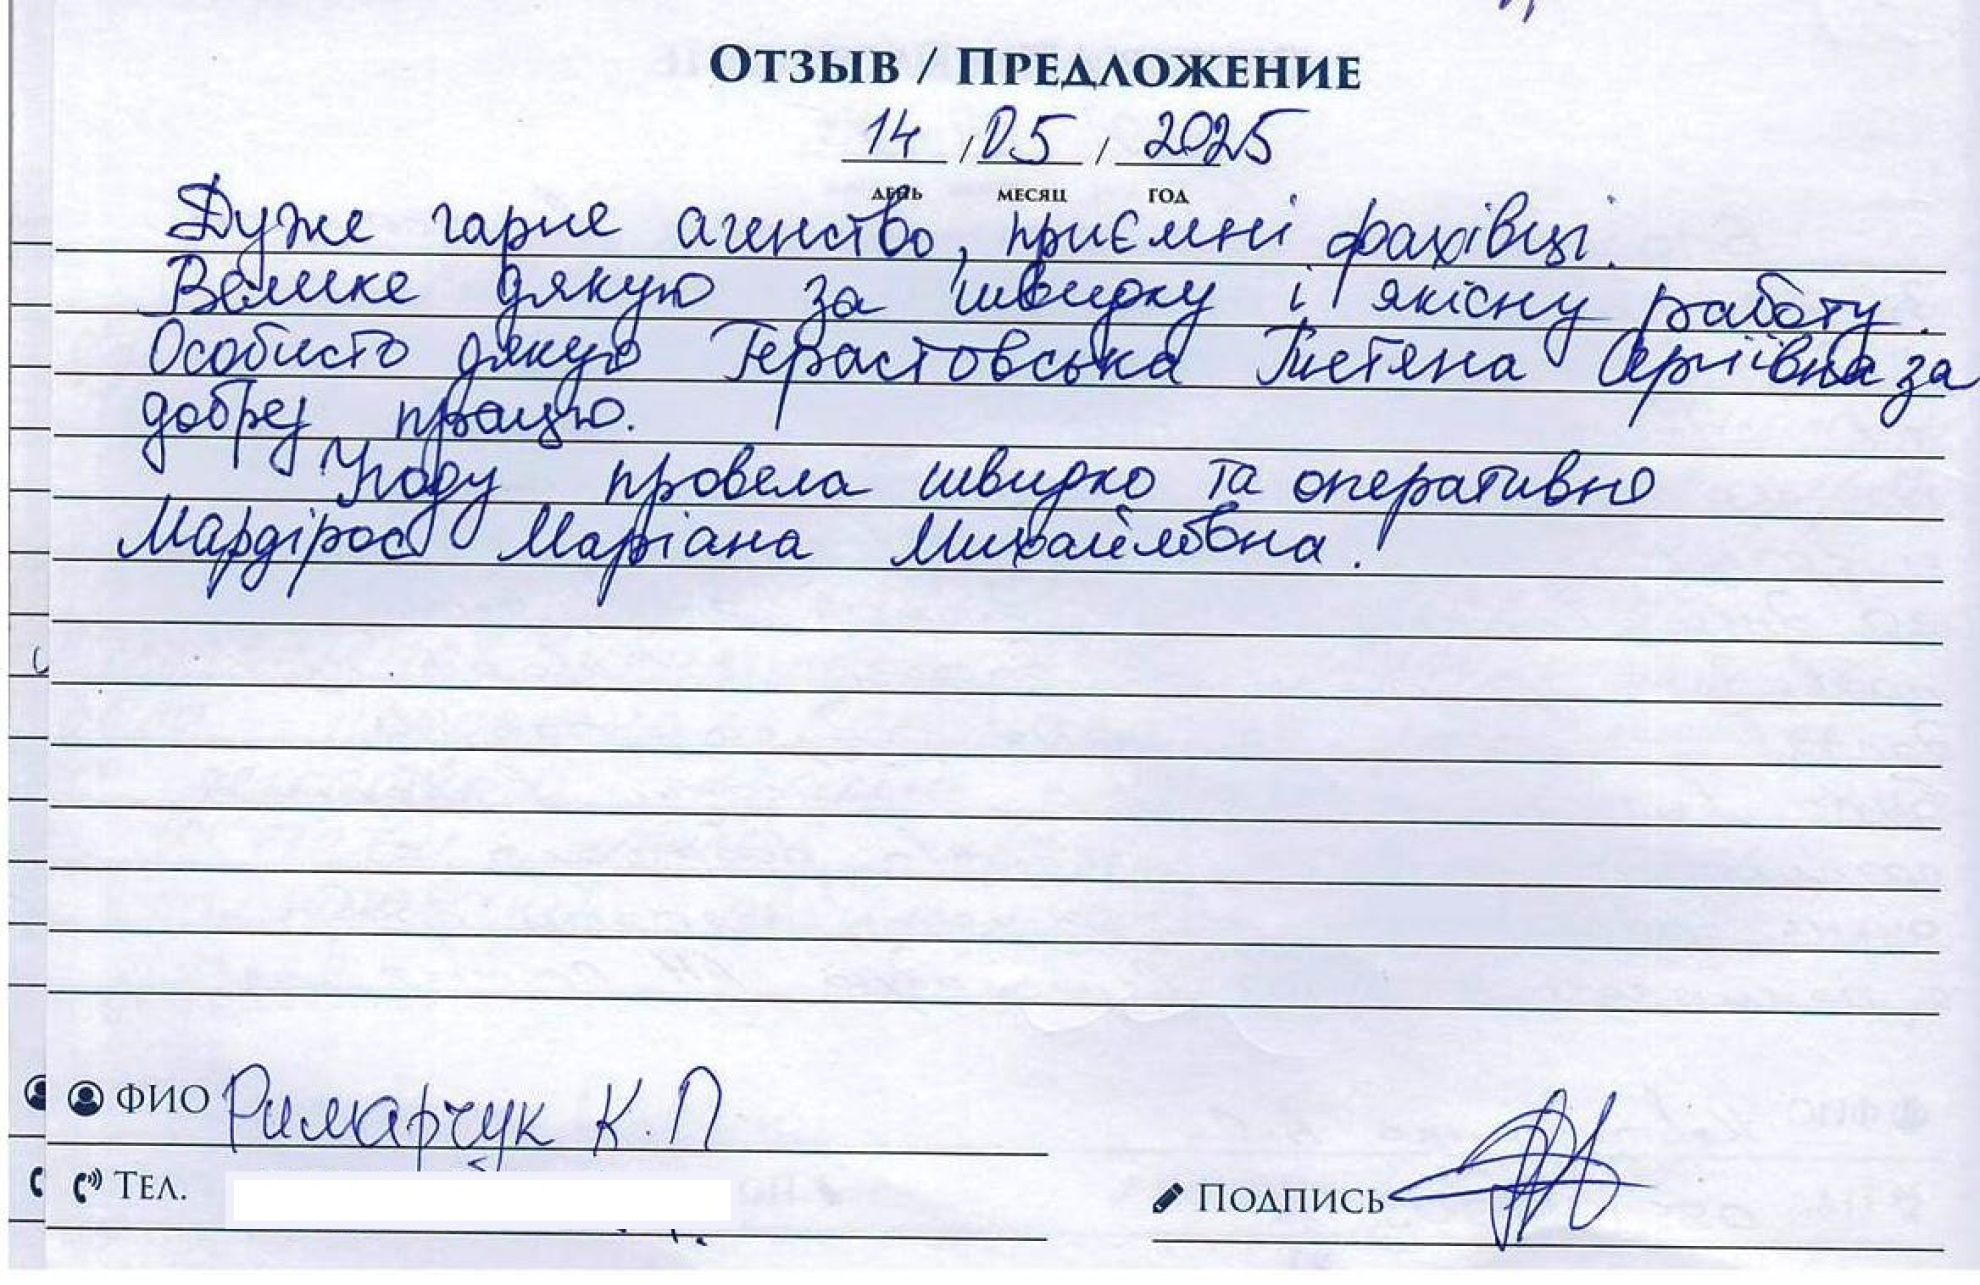 Отзыв / Предложение
14 / 05 / 2025
день месяц год
Дуже гарне агенство, приємні фахівці.
Велике дякую за швидку і якісну работу.
Особисто дякую Герастовська Тетяна Сергіївна за
добру працю.
Угоду провела швидко та оперативно
Мардірос Маріана Михайлівна.
ФИО Римарчук К.П
Тел.
Подпись